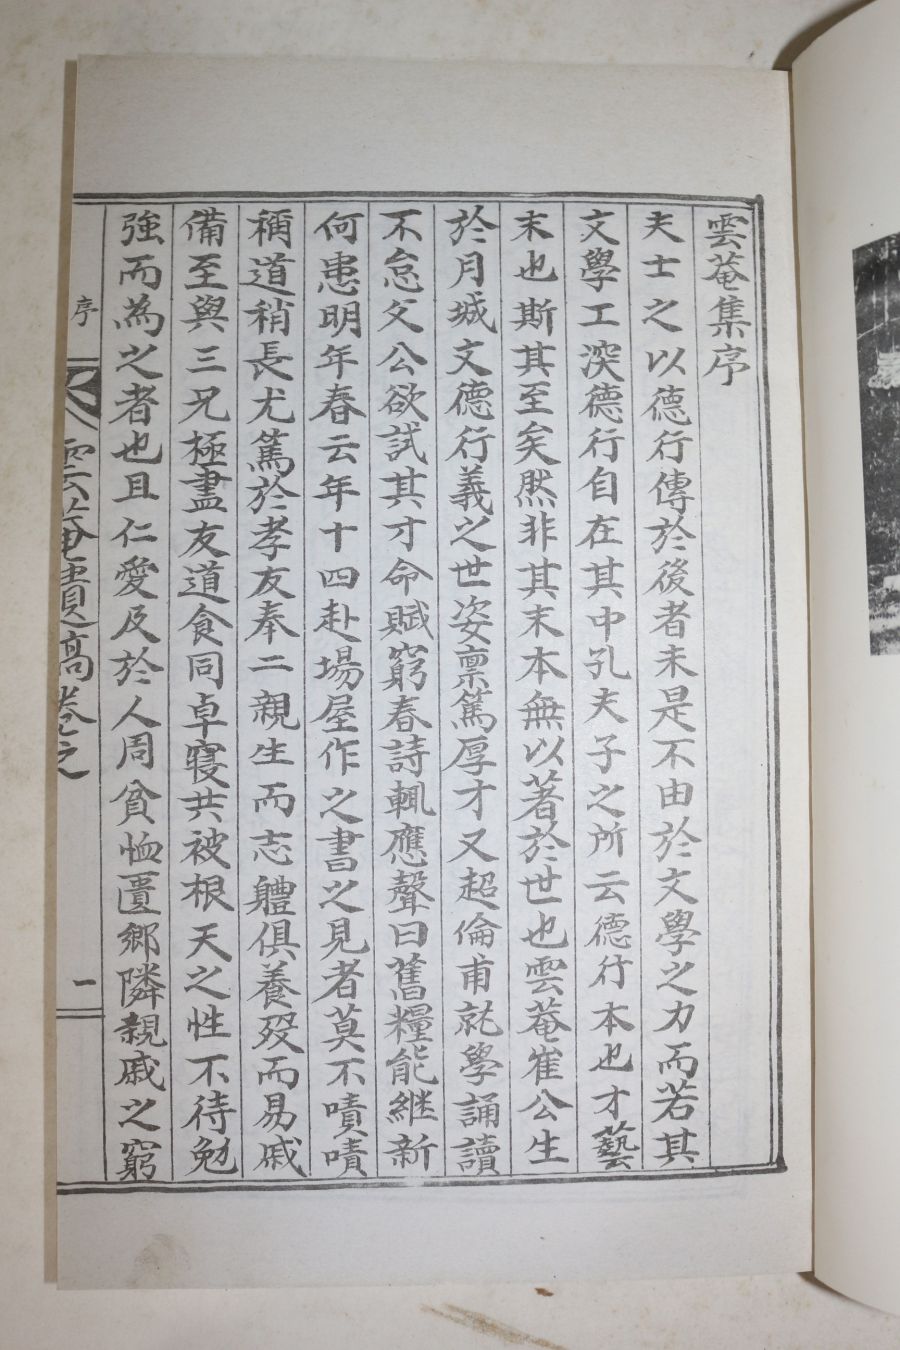 雲菴集序
夫士之以德行傳於後者未是不由於文學之力而若其
文學工深德行自在其中孔夫子之所云德行本也才藝
末也斯其至矣然非其末本無以著於世也雲菴崔公生
於月城文德行義之世姿禀篤厚才又超倫甫就學誦讀
不怠父公欲試其才命賦窮春詩輒應聲曰舊糧能継新
何患明年春云年十四赴場屋作之書之見者莫不嘖嘖
稱道稍長尤篤於孝友奉二親生而志軆俱養歿而易戚
備至與三兄極盡友道食同卓寢共被根天之性不待勉
強而為之者也且仁愛及於人周貧恤匱鄉隣親戚之窮
序
雲菴遺稿卷之
一